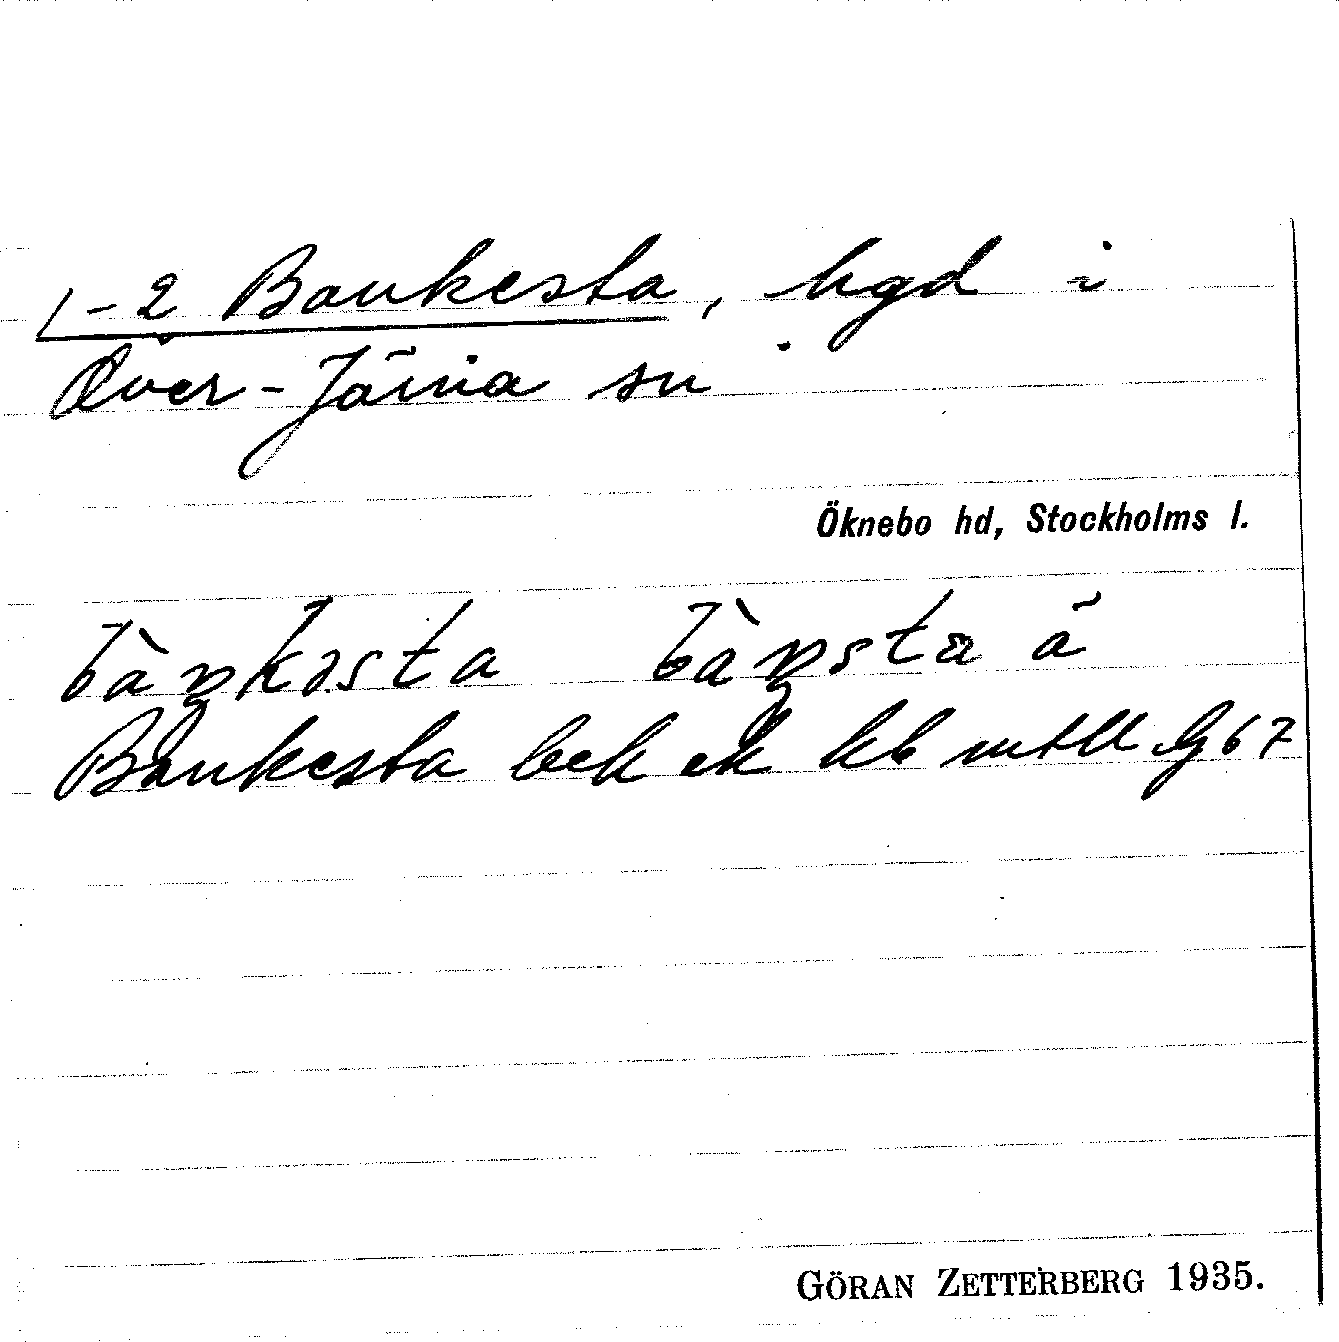 1-2 Bankesta, bgd i
Över-Järna sn
Öknebo hd, Stockholms l.
bàŋkəsta bàŋsta ä
Bankesta bek ek kb mtll G67
GÖRAN ZETTERBERG 1935.